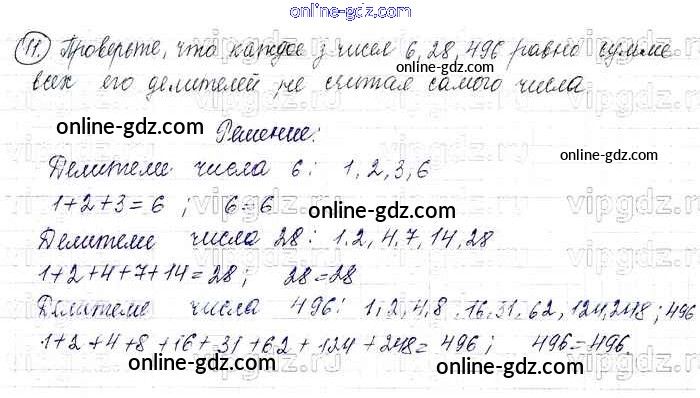 online-gdz.com
11. Проверьте, что каждое з чисел 6, 28, 496 равно сумме
всех его делителей, не считая самого числа
online-gdz.com
online-gdz.com
Решение:
Делители числа 6: 1, 2, 3, 6
online-gdz.com
1+2+3=6 ; 6=6
online-gdz.com
Делители числа 28: 1.2, 4.7, 14, 28
1+2+4+7+14=28; 28=28
online-gdz.com
Делители числа 496: 1, 2, 4, 8, 16, 31, 62, 124, 248; 496
1+2+4+8+16+31+62+124+248=496; 496=496.
online-gdz.com
online-gdz.com
vipgdz.ru
vipgdz.ru
vipgdz.ru